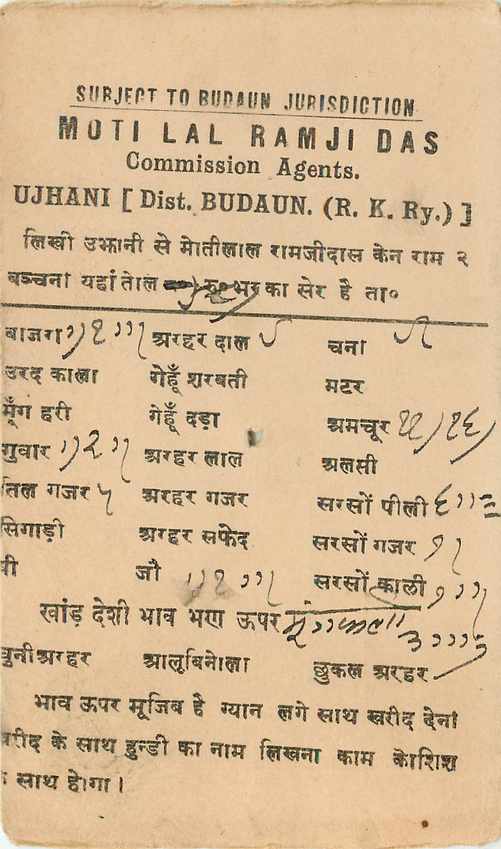 SUBJECT TO BUDAUN JURISDICTION
MOTI LAL RAMJI DAS
Commission Agents.
UJHANI [ Dist. BUDAUN. (R. K. Ry.) ]
लिखी उझानी से मोतीलाल रामजीदास केन राम २
बञ्चना यहां तोल का सेर है ता०
बाजरा अरहर दाल चना
उरद काला गेहूँ शरबती मटर
मूँग हरी गेहूँ दड़ा अमचूर
गुवार अरहर लाल अलसी
तिल गजर अरहर गजर सरसों पीली
सिगाड़ी अरहर सफेद सरसों गजर
जौ सरसों काली
खांड़ देशी भाव मण ऊपर
चुनीअरहर आलूबिनोला छुकल अरहर
भाव ऊपर मूजिब है ग्यान लगे साथ खरीद देनां
के साथ हुन्डी का नाम लिखना काम कोशिश
साथ होगा ।